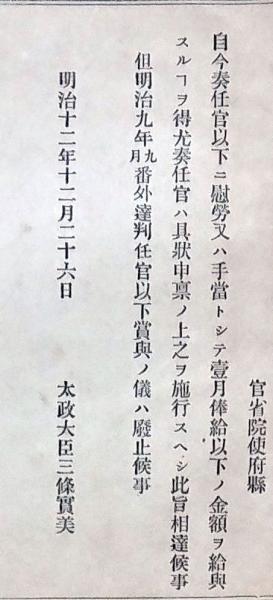 官省院使府縣
自今奏任官以下ニ慰勞又ハ手當トシテ壹月俸給以下ノ金額ヲ給與
スルヿヲ得尤奏任官ハ具狀申禀ノ上之ヲ施行スヘシ此旨相達候事
但明治九年九月番外達判任官以下賞與ノ儀ハ廢止候事
明治十二年十二月二十六日
太政大臣三條實美